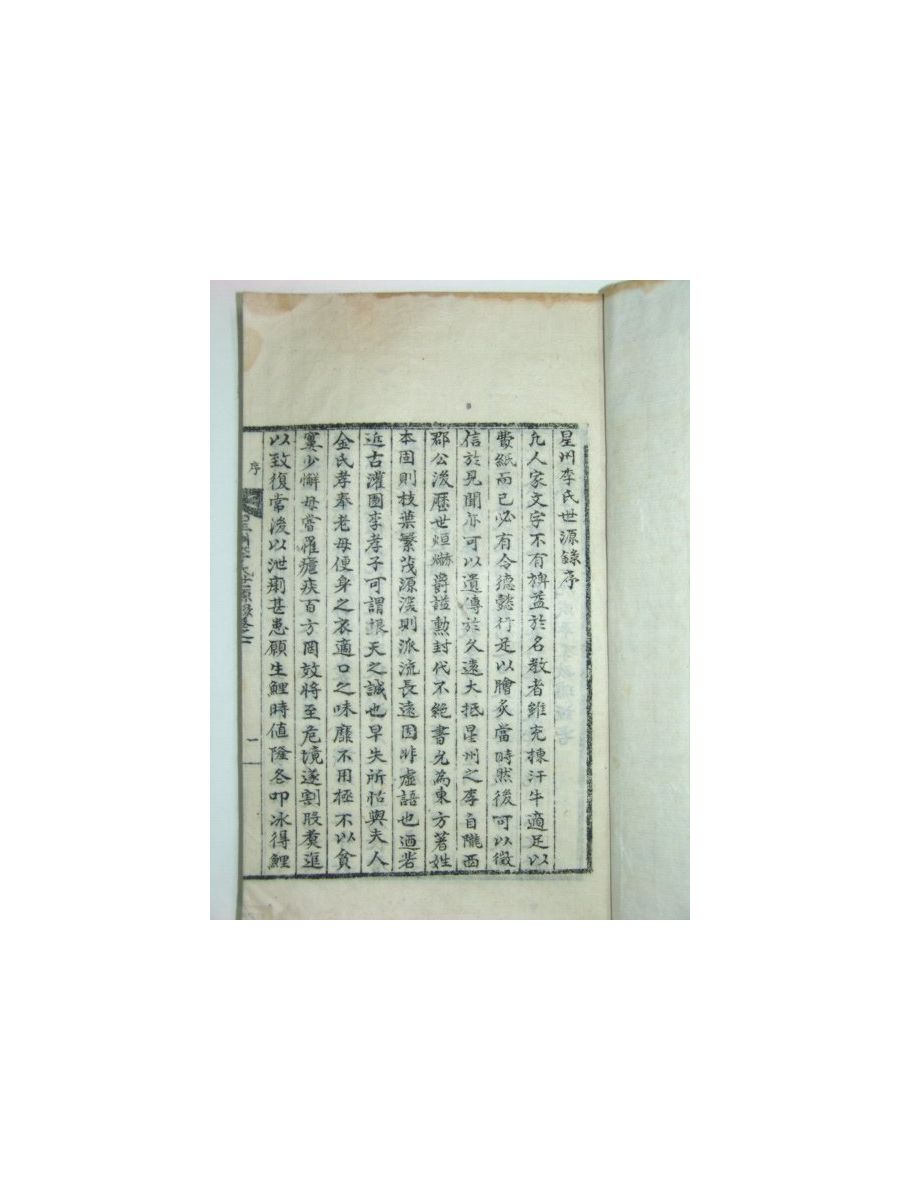 星州李氏世源錄序
凢人家文字不有裨益於名教者雖充棟汗牛適足以
費紙而已必有令德懿行足以膾炙當時然後可以徵
信於見聞亦可以遺傳於久遠大抵星州之李自隴西
郡公後歷世烜爀爵謚勲封代不絶書尤為東方著姓
本固則枝葉繁茂源深則派流長遠固非虛語也迺若
近古灌園李孝子可謂根天之誠也早失所怙與夫人
金氏孝奉老母便身之衣適口之味靡不用極不以貧
窶少懈母嘗罹瘧疾百方罔效將至危境遂割股煑進
以致復常後以泄痢甚患願生鯉時値隆冬叩冰得鯉
序
星州李氏世源錄卷之一
一